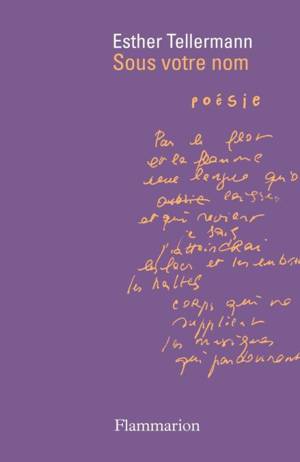 Esther Tellermann
Sous votre nom
poésie
Par le fleor
et la flamme
une langue qu'o
laisse
et qui revient
je sais
j'attendrai
et les
les haltes
corps qui ne
supplient
les musiques
qui parcourent
Flammarion